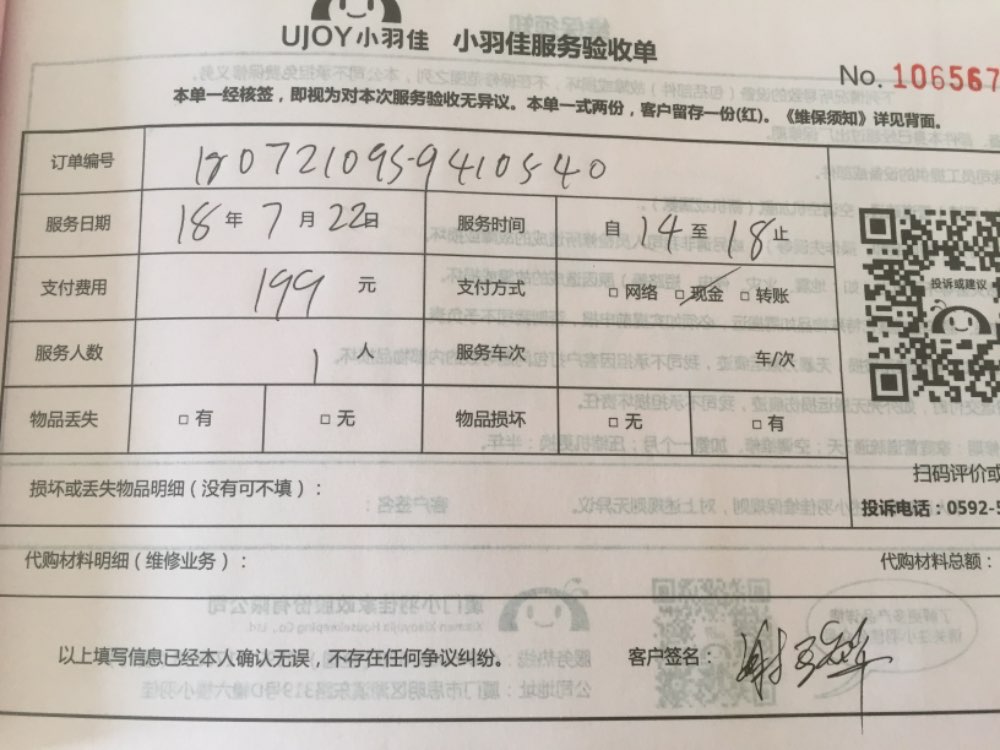 UJOY小羽佳 小羽佳服务验收单
No. 106567
本单一经核签，即视为对本次服务验收无异议。本单一式两份，客户留存一份(红)。《维保须知》详见背面。
订单编号 1807210959410540
服务日期 18年7月22日 服务时间 自14至18止
支付费用 199元 支付方式 □网络 □现金 □转账
投诉或建议
服务人数 1人 服务车次 车/次
物品丢失 □有 □无 物品损坏 □无 □有
扫码评价或
损坏或丢失物品明细（没有可不填）：
投诉电话：0592-5
代购材料明细（维修业务）： 代购材料总额：
以上填写信息已经本人确认无误，不存在任何争议纠纷。 客户签名：